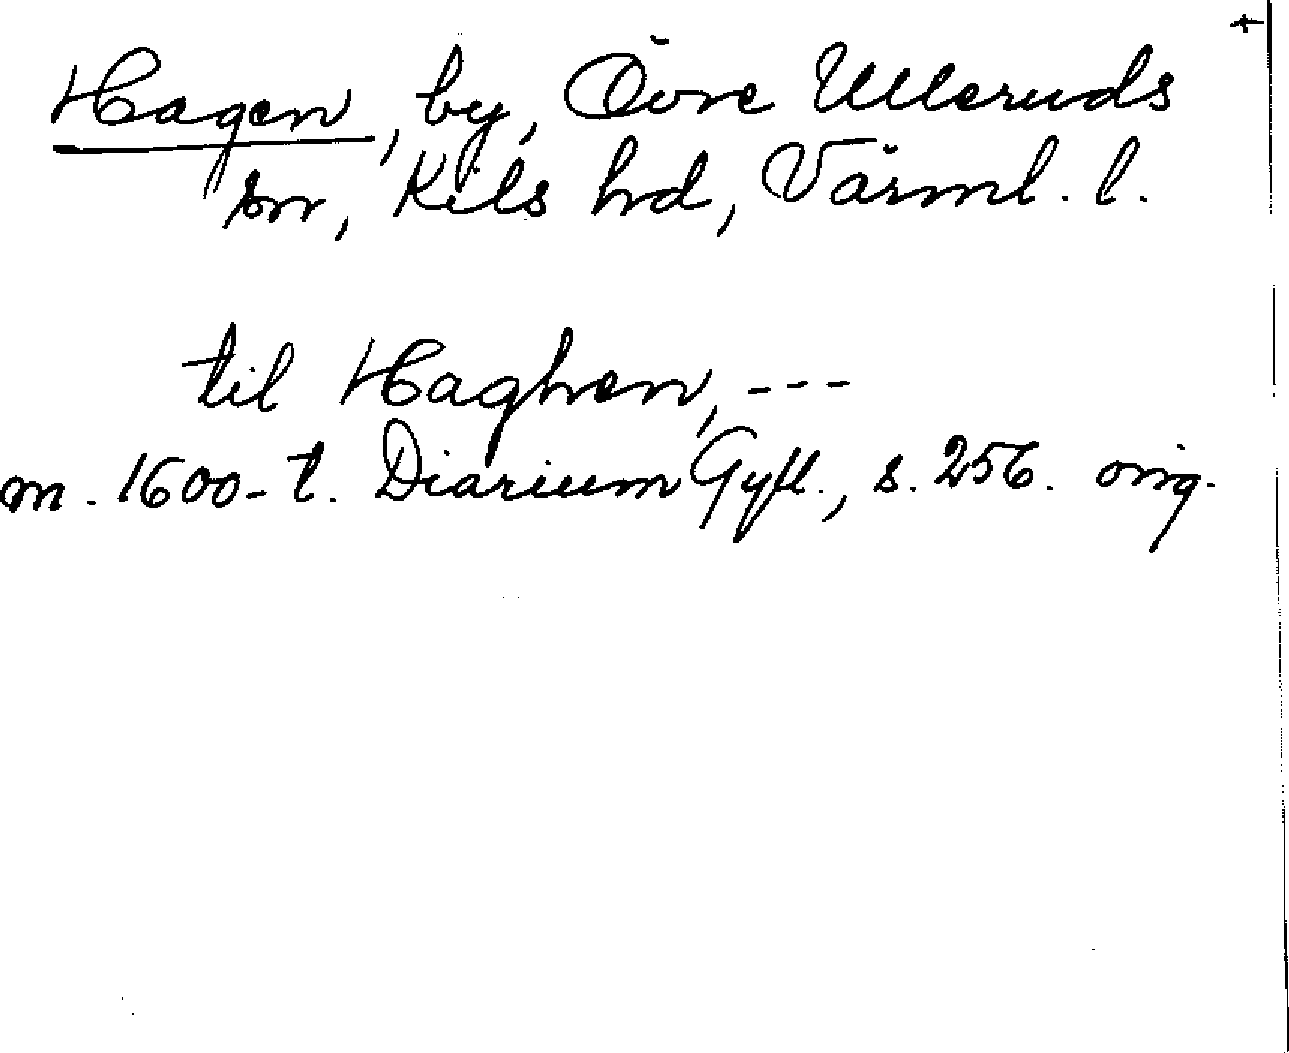 Hagen, by, Övre Ulleruds
sn, Kils hd, Värml. l.
til Haghen, ---
m. 1600-t. Diarium Gyll., s. 256. orig.